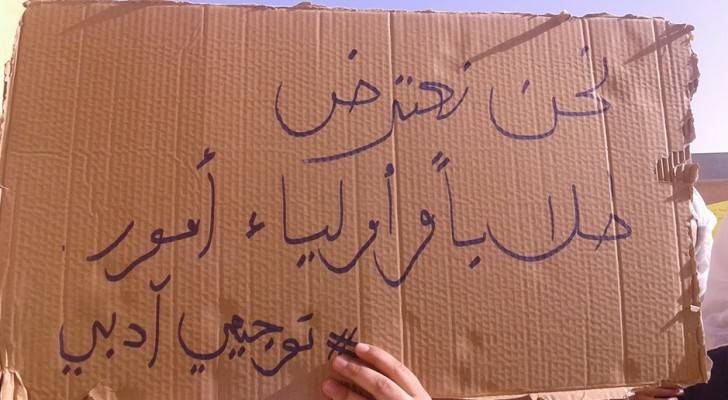 نحن نعترض
طلاباً وأولياء أمور.
#توجيهي أدبي